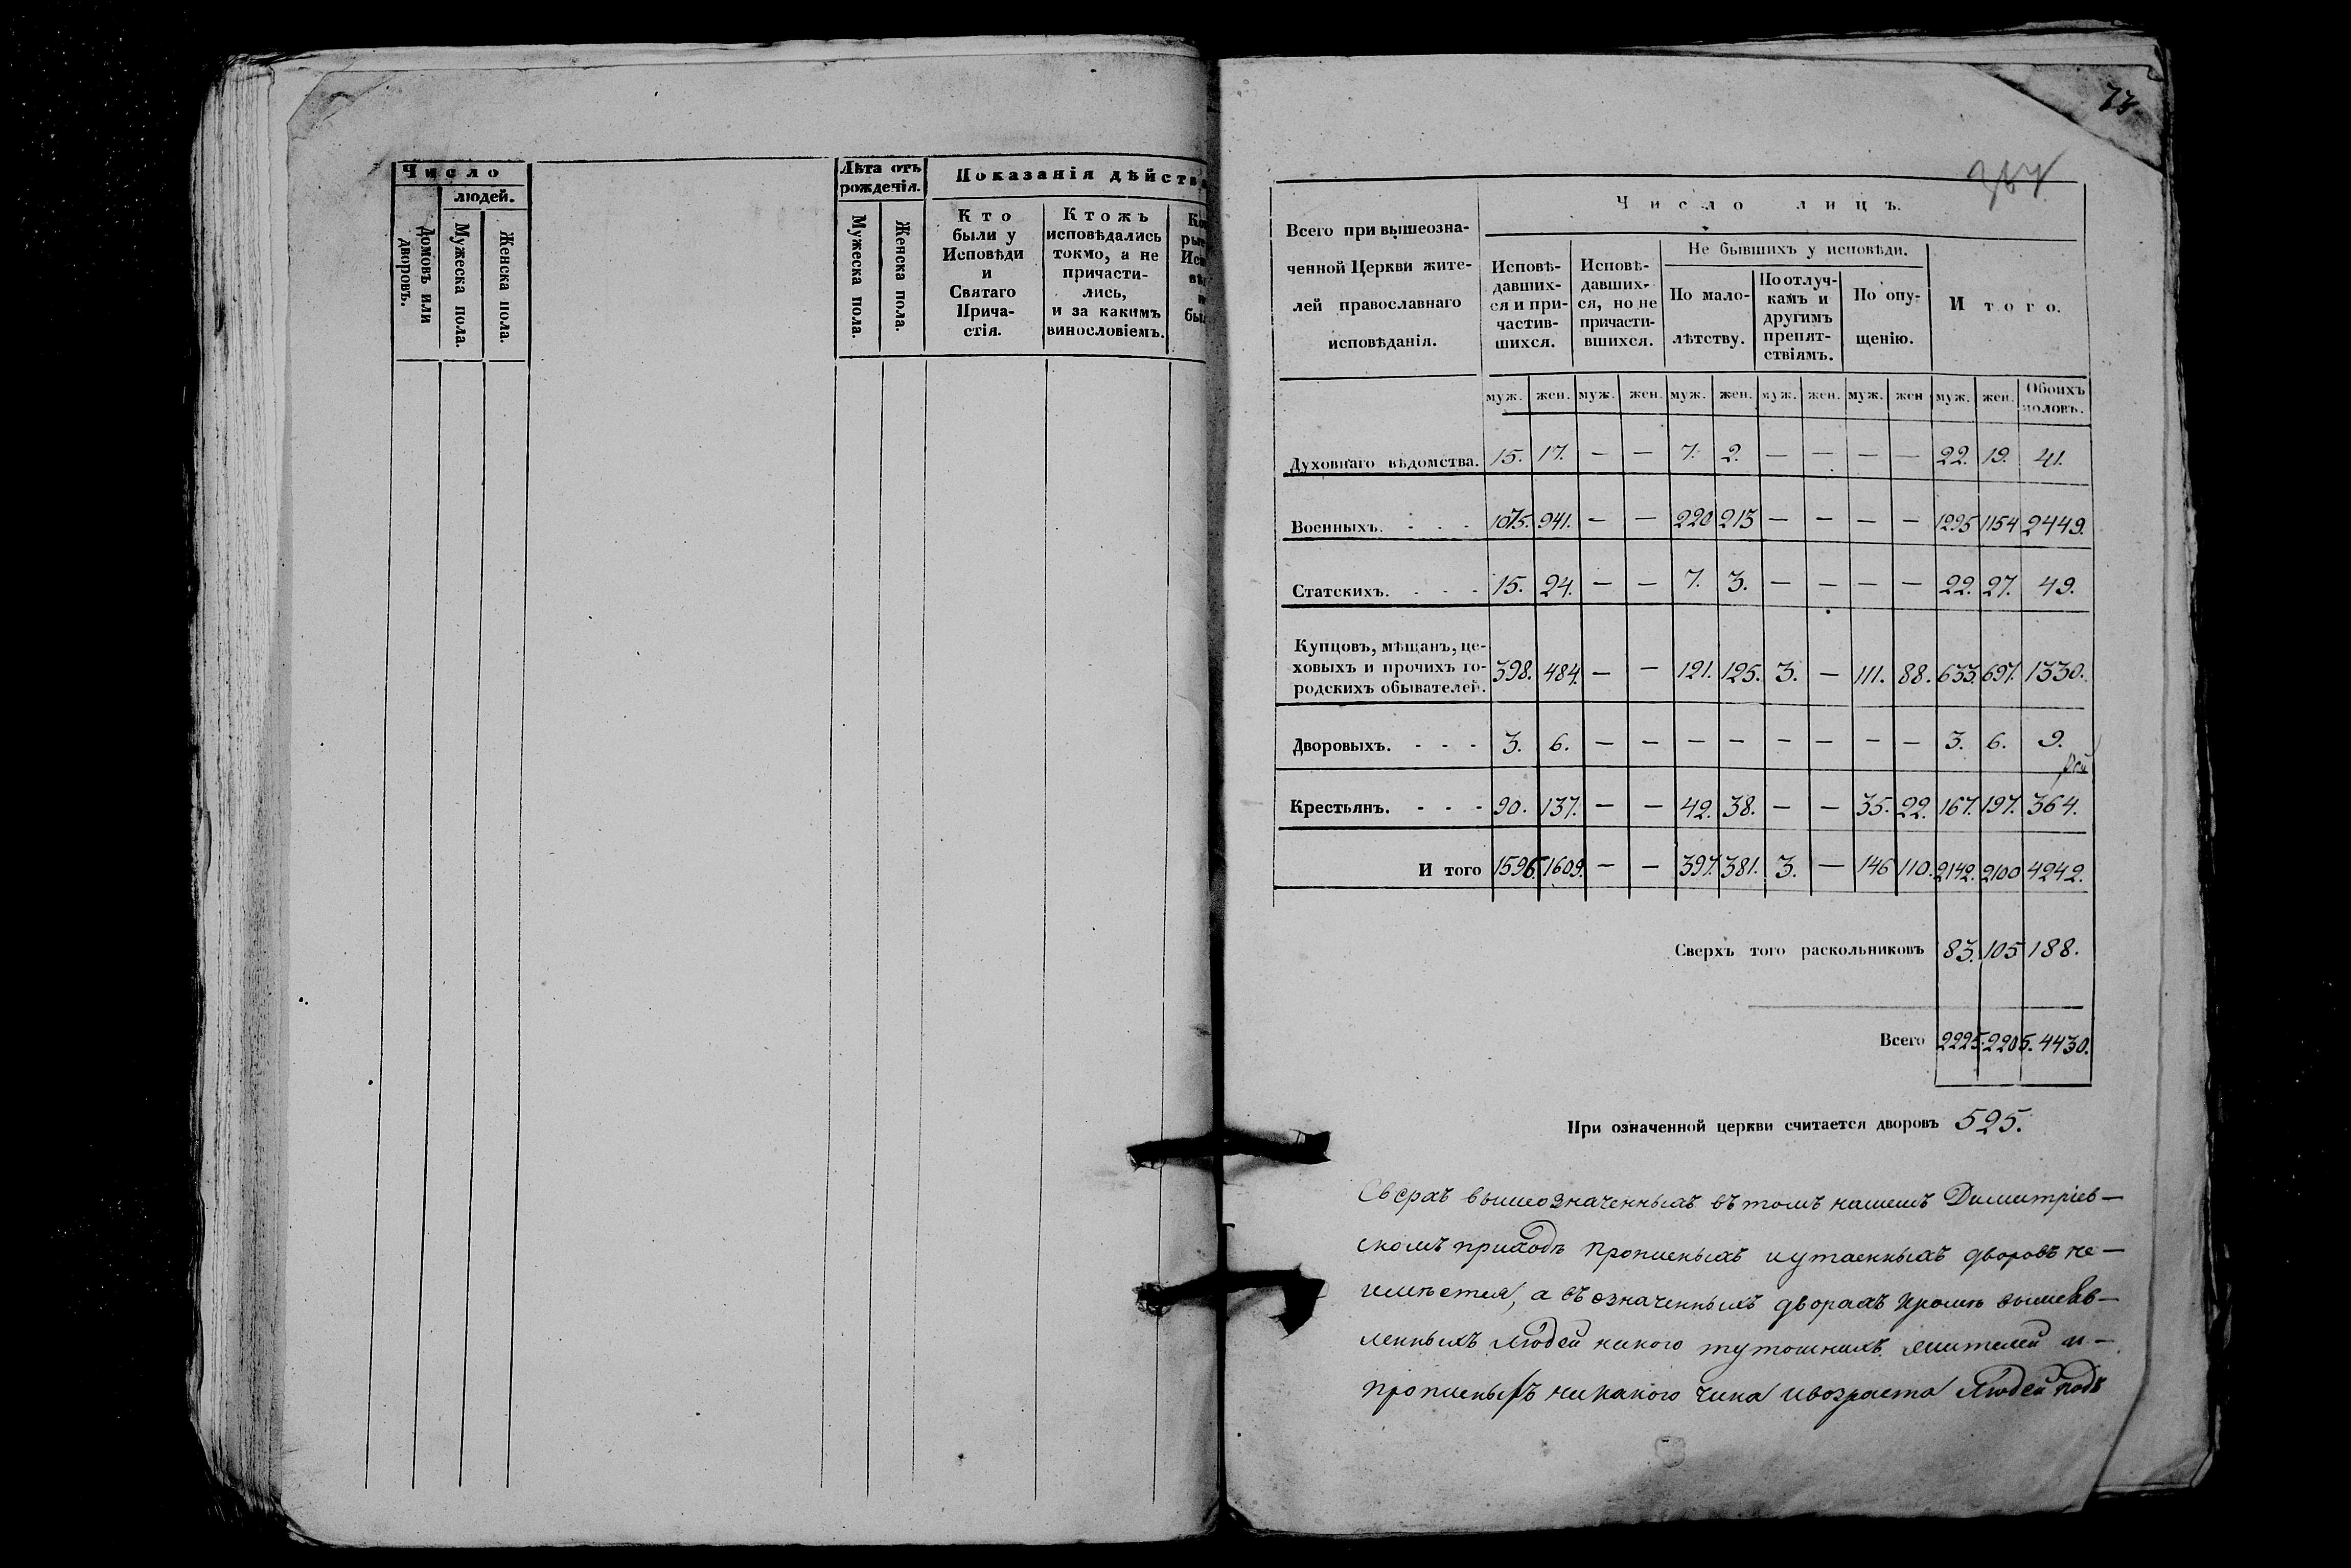 Число
людей.
Домовъ или дворовъ.
Мужеска пола.
Женска пола.
Лѣта отъ рожденія.
Мужеска пола.
Женска пола.
Показанія дѣйств
Кто
были у
Исповѣди
и
Святаго
Прича-
стія.
Ктожъ
исповѣдались
токмо, а не
причасти-
лись,
и за какимъ
винословіемъ.
73
Всего при вышеозна-
ченной Церкви жите-
лей православнаго
исповѣданія.
Число лицъ.
Исповѣ-
давших-
ся и при-
частив-
шихся.
Исповѣ-
давших-
ся, но не
причасти-
вшихся.
Не бывшихъ у исповѣди.
По мало-
лѣтству.
По отлуч-
камъ и
другимъ
препят-
ствіямъ.
По опу-
щенію.
Итого.
муж. жен. муж. жен. муж. жен. муж. жен. муж. жен муж. жен. Обоихъ половъ.
Духовнаго вѣдомства. 15. 17. — — 7. 2. — — — — 22. 19. 41.
Военныхъ. - - - 1075. 941. — — 220 213 — — — — 1295 1154 2449.
Статскихъ. - - - 15. 24. — — 7. 3. — — — — 22. 27. 49.
Купцовъ, мѣщанъ, це-
ховыхъ и прочихъ го-
родскихъ обывателей. 398. 484. — — 121. 125. 3. — 111. 88. 633. 697. 1330.
Дворовыхъ. - - - 3. 6. — — — — — — — — 3. 6. 9.
Крестьянъ. - - - 90. 137. — — 42. 38. — — 35. 22. 167. 197. 364.
И того 1596. 1609. — — 397. 381. 3. — 146 110. 2142. 2100 4242.
Сверхъ того раскольниковъ 83. 105 188.
Всего 2225. 2205. 4430.
При означенной церкви считается дворовъ 525.
Сверхъ вышеозначенныхъ въ томъ нашемъ Димитріев—
скомъ приходѣ прописныхъ и утаенныхъ дворовъ не—
имѣется, а въ означенныхъ дворахъ кромѣ
людей никого тутошнихъ жителей и—
прописныхъ никакого чина и возраста людей подъ